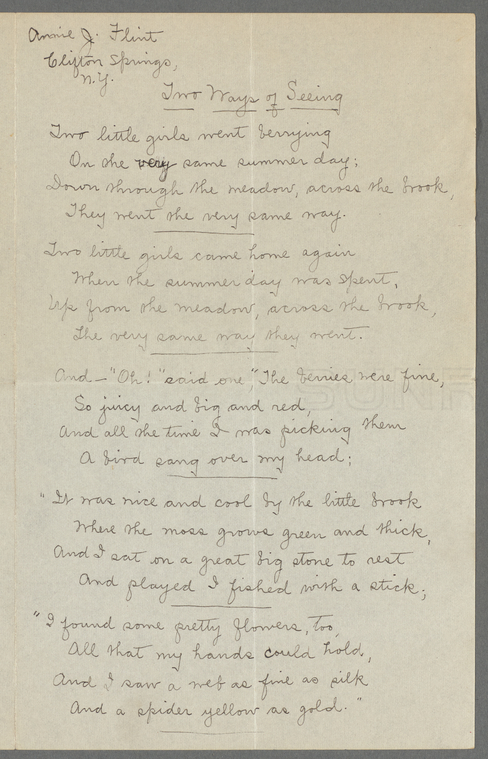 Annie J. Flint
Clifton Springs,
N.Y.
Two Ways of Seeing
Two little girls went berrying
On the very same summer day;
Down through the meadow, across the brook,
They went the very same way.
Two little girls came home again
When the summer day was spent,
Up from the meadow, across the brook,
The very same way they went.
And – "Oh!" said one, "The berries were fine,
So juicy and big and red,
And all the time I was picking them
A bird sang over my head;
"It was nice and cool by the little brook
Where the moss grows green and thick,
And I sat on a great big stone to rest
And played I fished with a stick;
"I found some pretty flowers, too,
All that my hands could hold,
And I saw a web as fine as silk
And a spider yellow as gold."